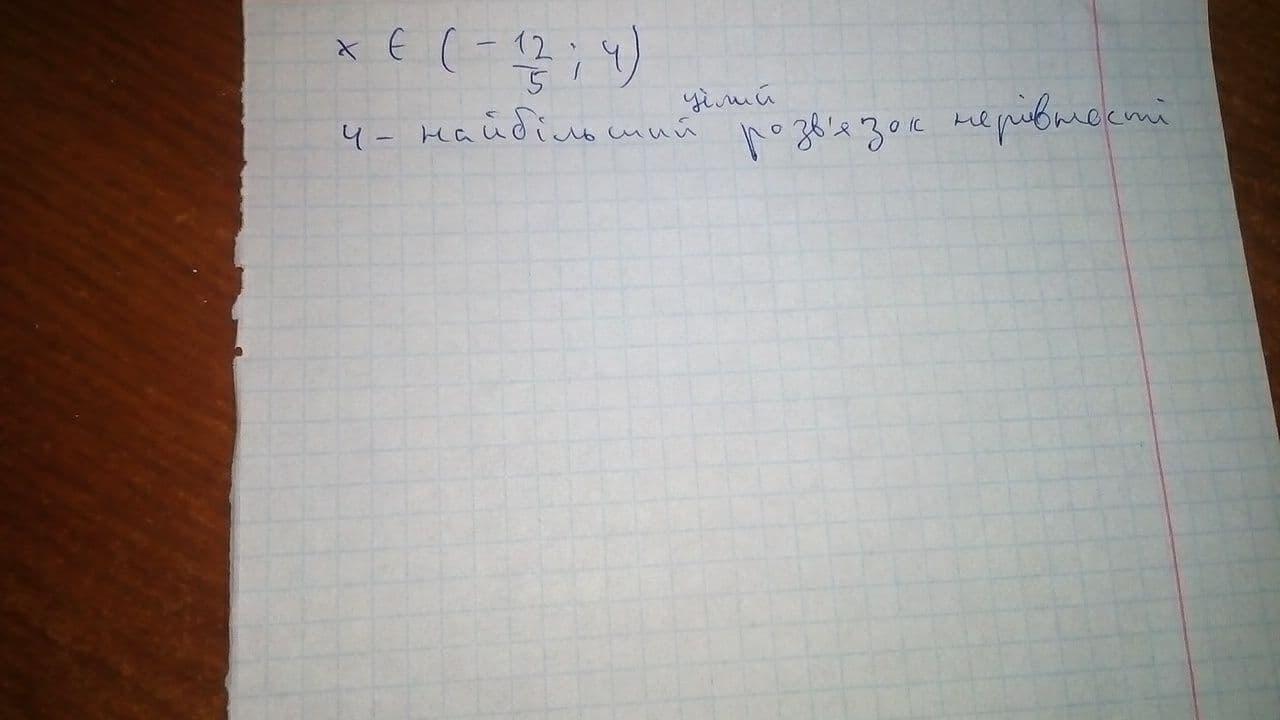 x ∈ (-12/5; 4)
4 - найбільший цілий розв'язок нерівності